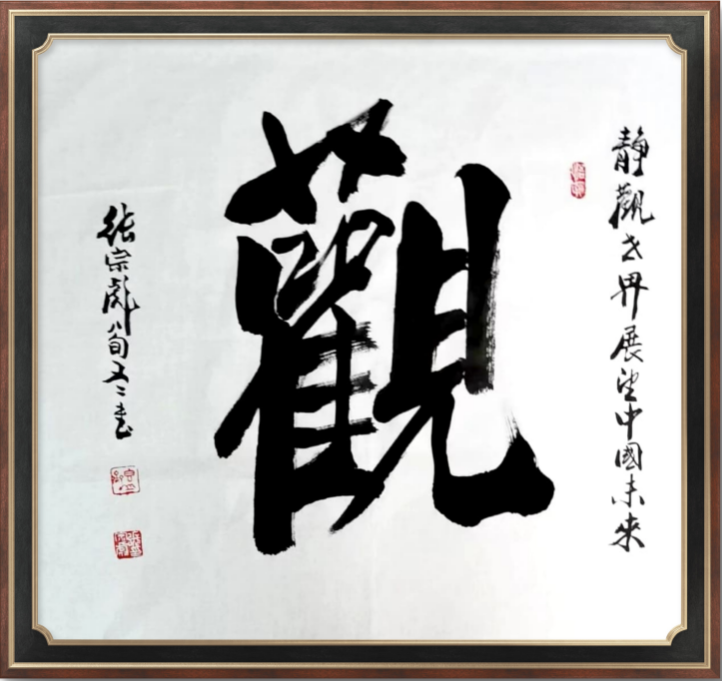 靜觀世界展望中國未來
觀
張宗彪八旬又二書